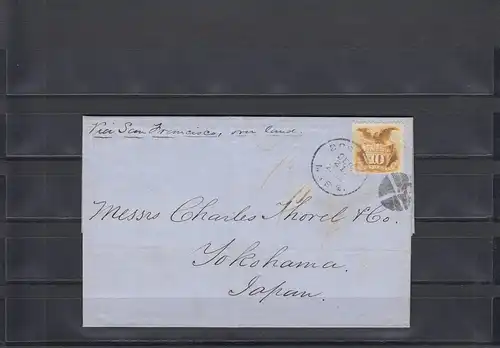 Via San Francisco, over land.
10
Messrs Charles Thorel & Co.
Yokohama.
Japan.